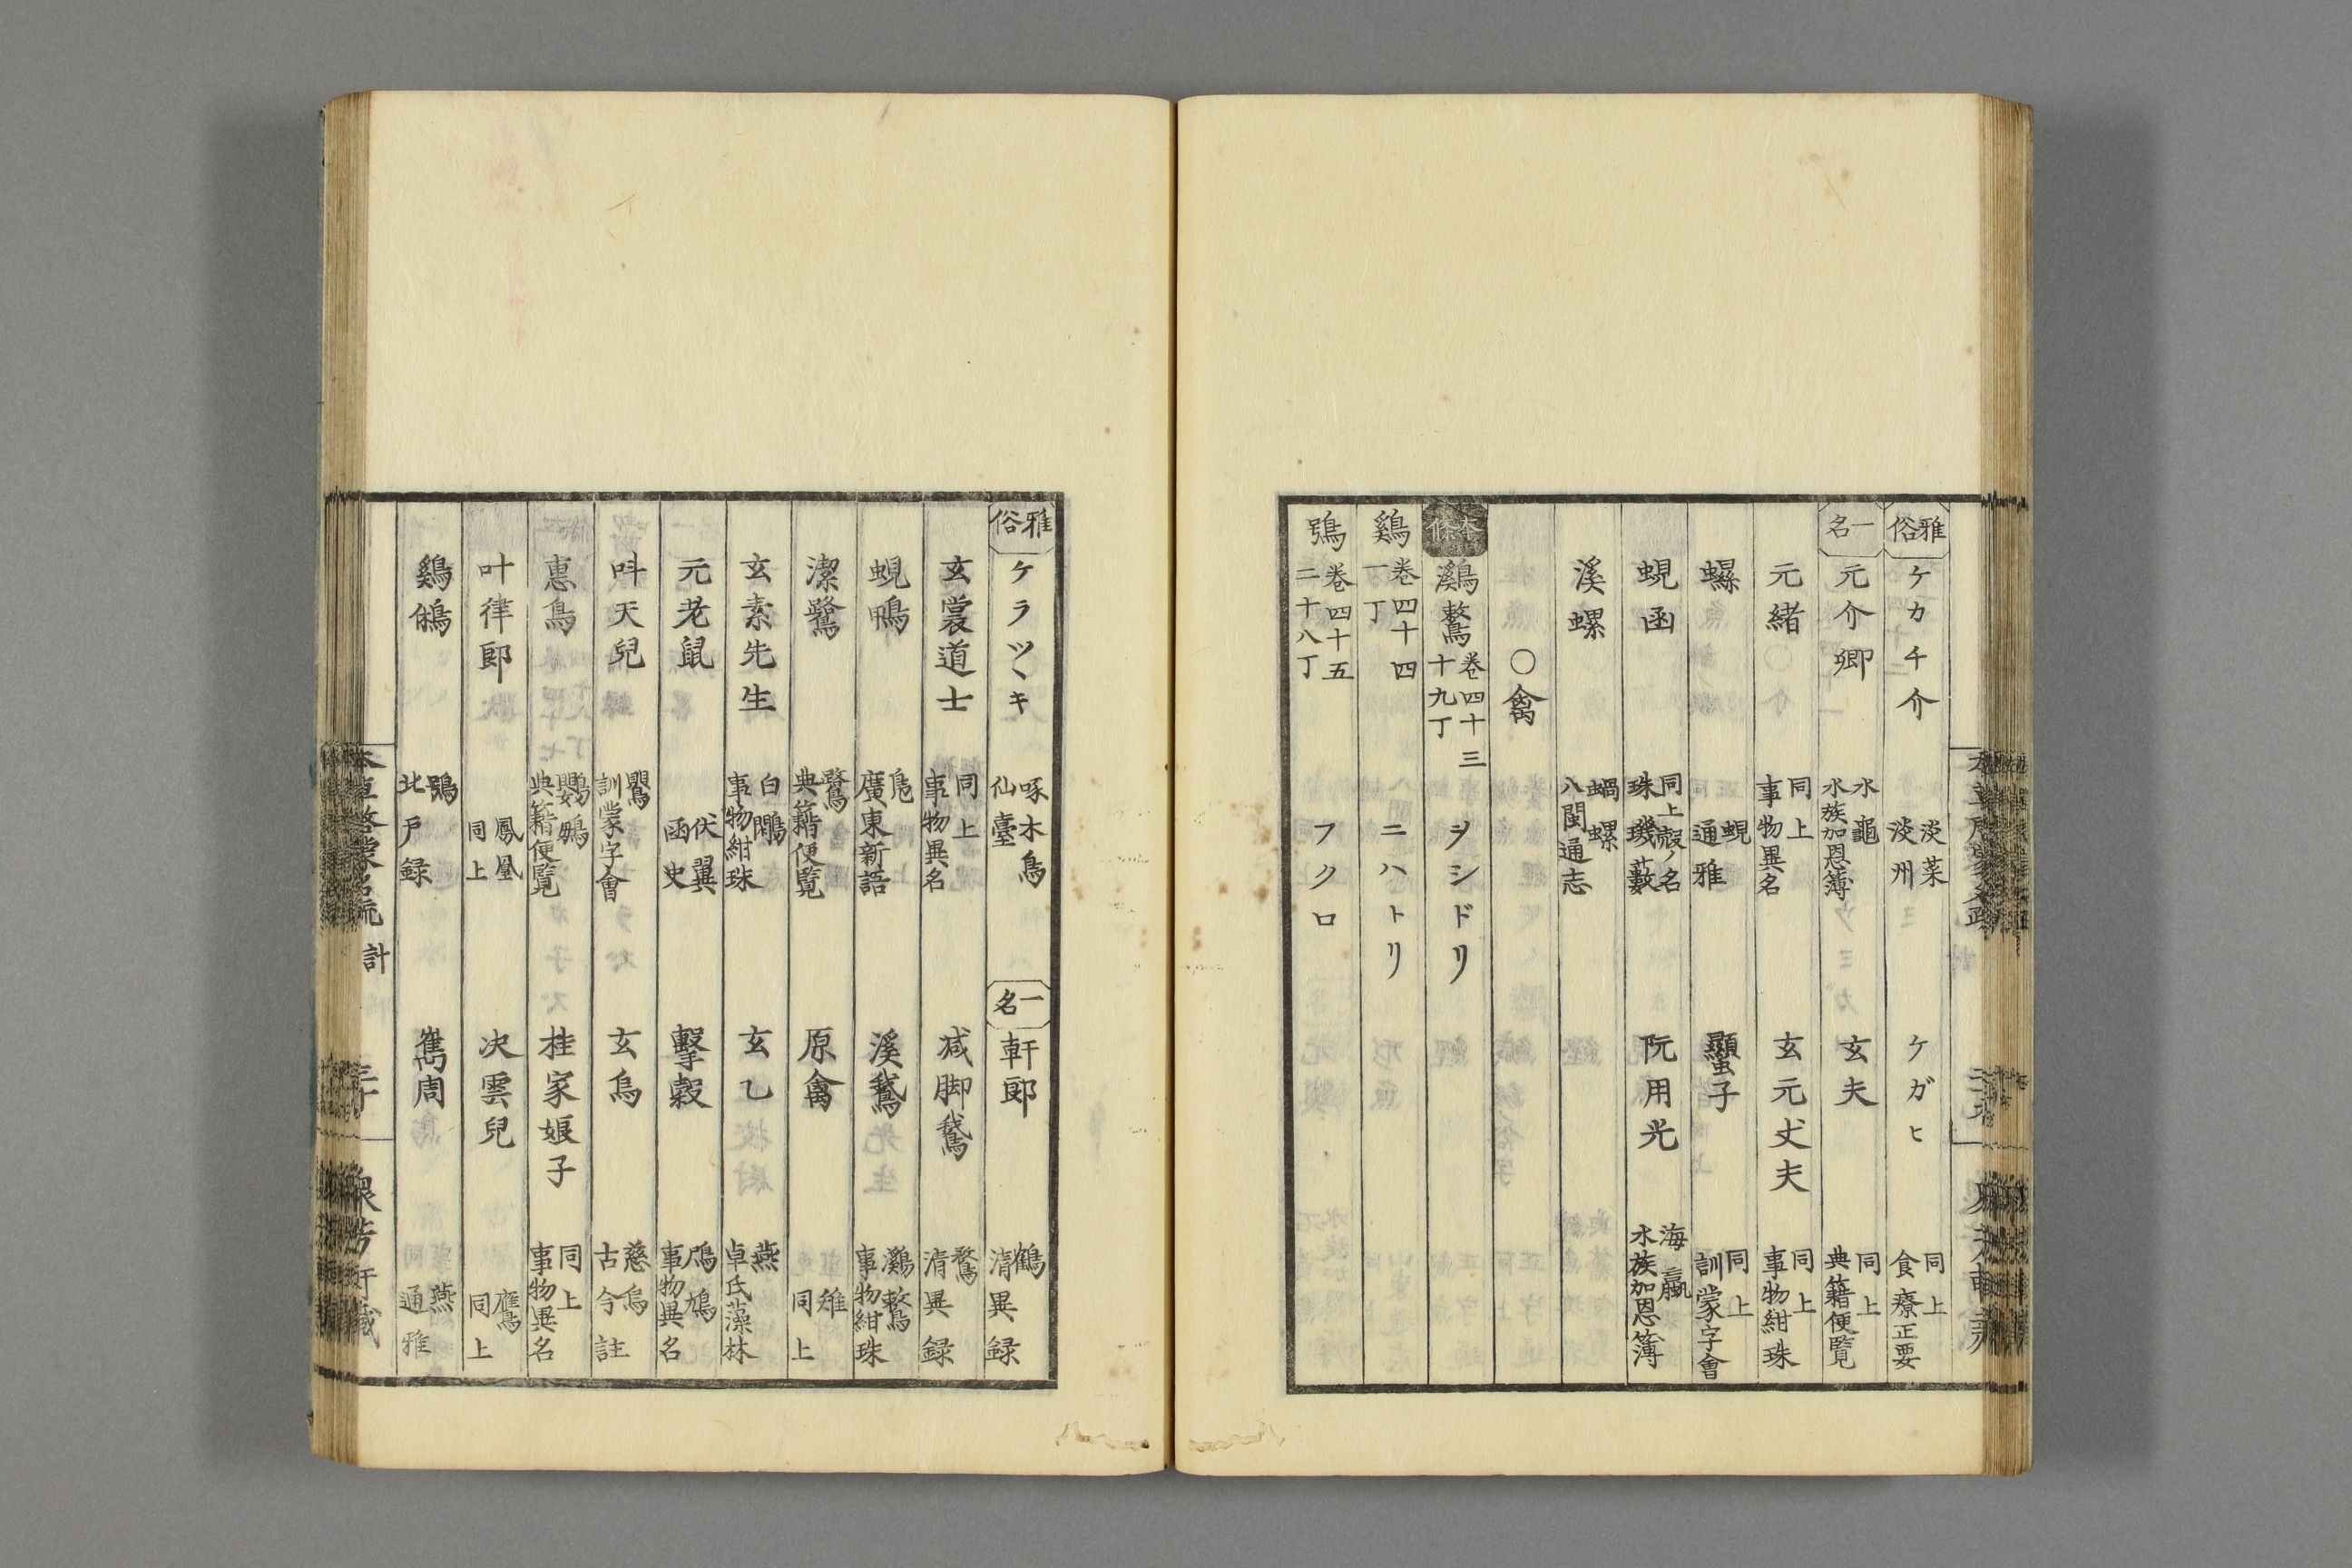 雅俗 ケカチ介 淡菜 淡州 ケガヒ 同上 食療正要
一名 元介卿 水龜 水族加恩簿 玄夫 同上 典籍便覽
元緒 同上 事物異名 玄元丈夫 同上 事物紺珠
螺 蜆 通雅 子 同上 訓蒙字會
蜆函 同上殼ノ名 珠璣藪 阮用光 海蠃 水族加恩簿
溪螺 蝸螺 八閩通志
○禽
本條 鸂鷘 卷四十三 十九丁 ヲシドリ
鷄 卷四十四 一丁 ニハトリ
鴞 卷四十五 二十八丁 フクロ
雅俗 ケラツヽキ 啄木鳥 仙臺 一名 軒郎 鶴 清異録
玄裳道士 同上 事物異名 減脚鵞 鶩 清異録
蜆鴨 鳧 廣東新語 溪鵞 鸂鷘 事物紺珠
潔鷺 鷖 典籍便覽 原禽 雉 同上
玄素先生 白鷴 事物紺珠 玄乙 燕 卓氏藻林
元老鼠 伏翼 函史 擊穀 鳲鳩 事物異名
呌天兒 鷚 訓蒙字會 玄烏 慈烏 古今註
惠鳥 鸚鵡 典籍便覽 桂家娘子 同上 事物異名
叶律郎 鳳凰 同上 決雲兒 鷹 同上
鷄鵂 鴞 北戸録 雟周 燕 通雅
本草啓蒙名疏 計 三十 衆芳軒藏